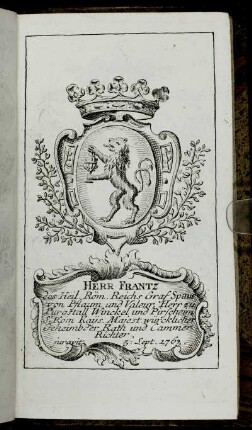 HERR FRANTZ
des Heil. Röm. Reichs Graf Spaur
von Phlaum und Valeur, Herr zu
Burgstall, Winckel, und Pirschheim
d. Röm. Kais. Majest. würcklicher
Geheimbder Rath und Cammer
Richter.
juravit 5. Sept. 1763.